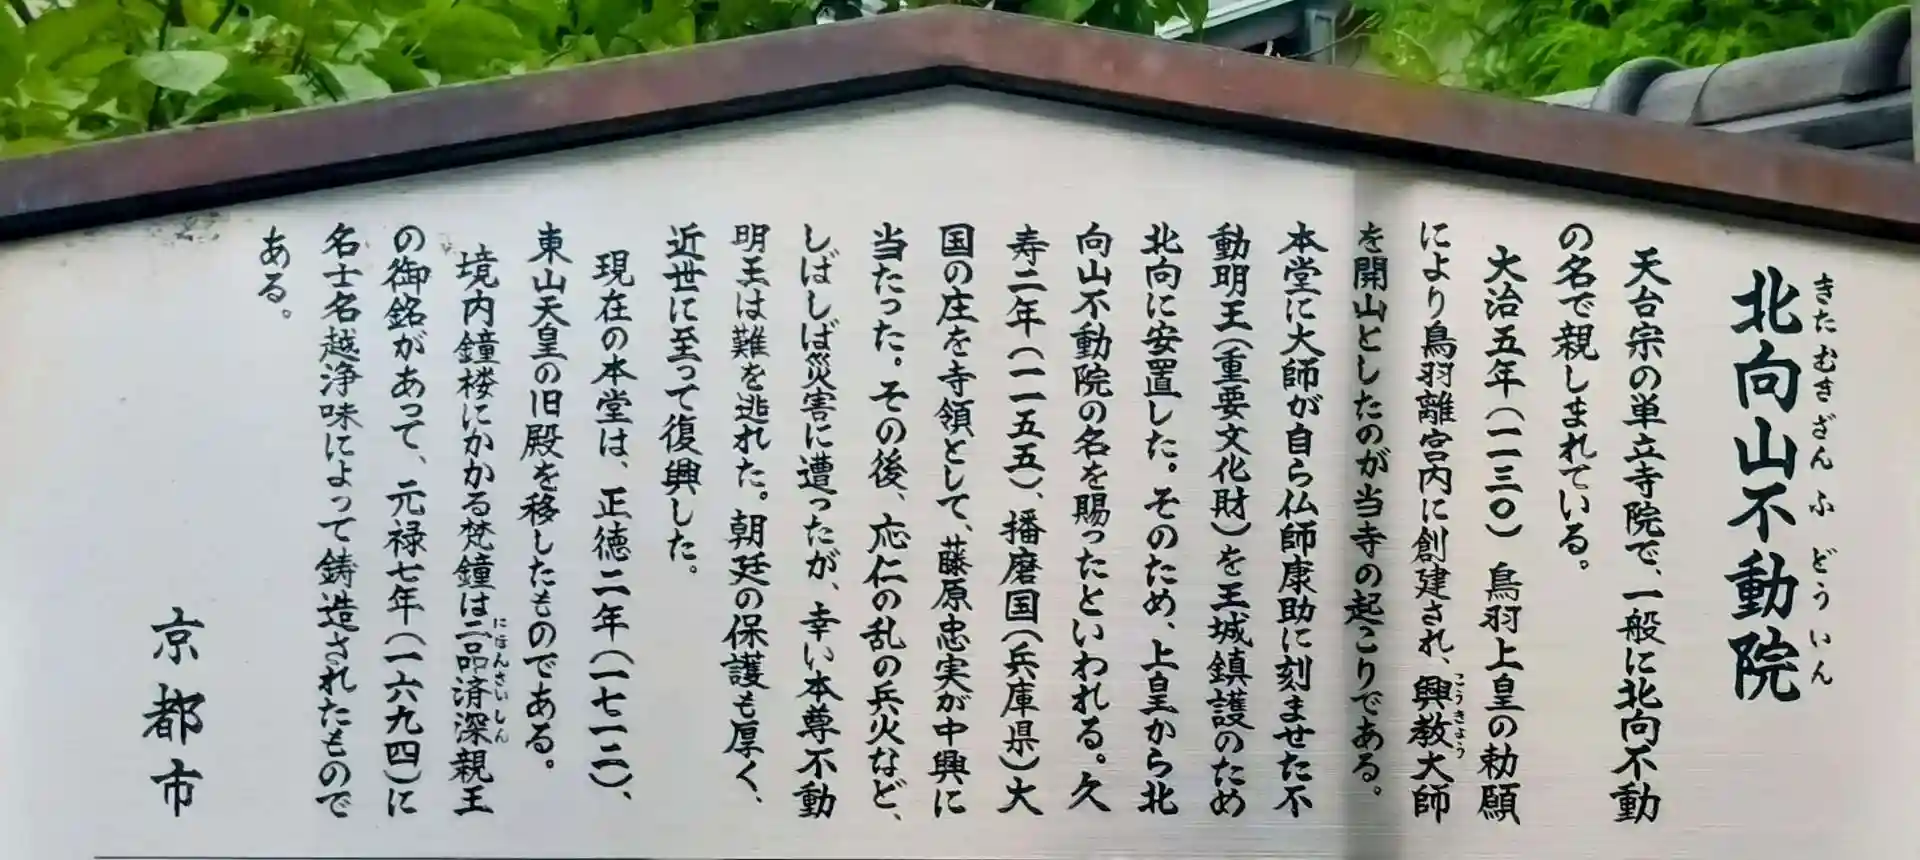 北向山不動院
きたむきざんふどういん
天台宗の単立寺院で、一般に北向不動
の名で親しまれている。
大治五年（一一三〇）鳥羽上皇の勅願
により鳥羽離宮内に創建され、興教大師
こうきょう
を開山としたのが当寺の起こりである。
本堂に大師が自ら仏師康助に刻ませた不
動明王（重要文化財）を王城鎮護のため
北向に安置した。そのため、上皇から北
向山不動院の名を賜ったといわれる。久
寿二年（一一五五）、播磨国（兵庫県）大
国の庄を寺領として、藤原忠実が中興に
当たった。その後、応仁の乱の兵火など、
しばしば災害に遭ったが、幸い本尊不動
明王は難を逃れた。朝廷の保護も厚く、
近世に至って復興した。
現在の本堂は、正徳二年（一七一二）、
東山天皇の旧殿を移したものである。
境内鐘楼にかかる梵鐘は二品済深親王
にほんさいしん
の御銘があって、元禄七年（一六九四）に
名士名越浄味によって鋳造されたもので
ある。
京都市